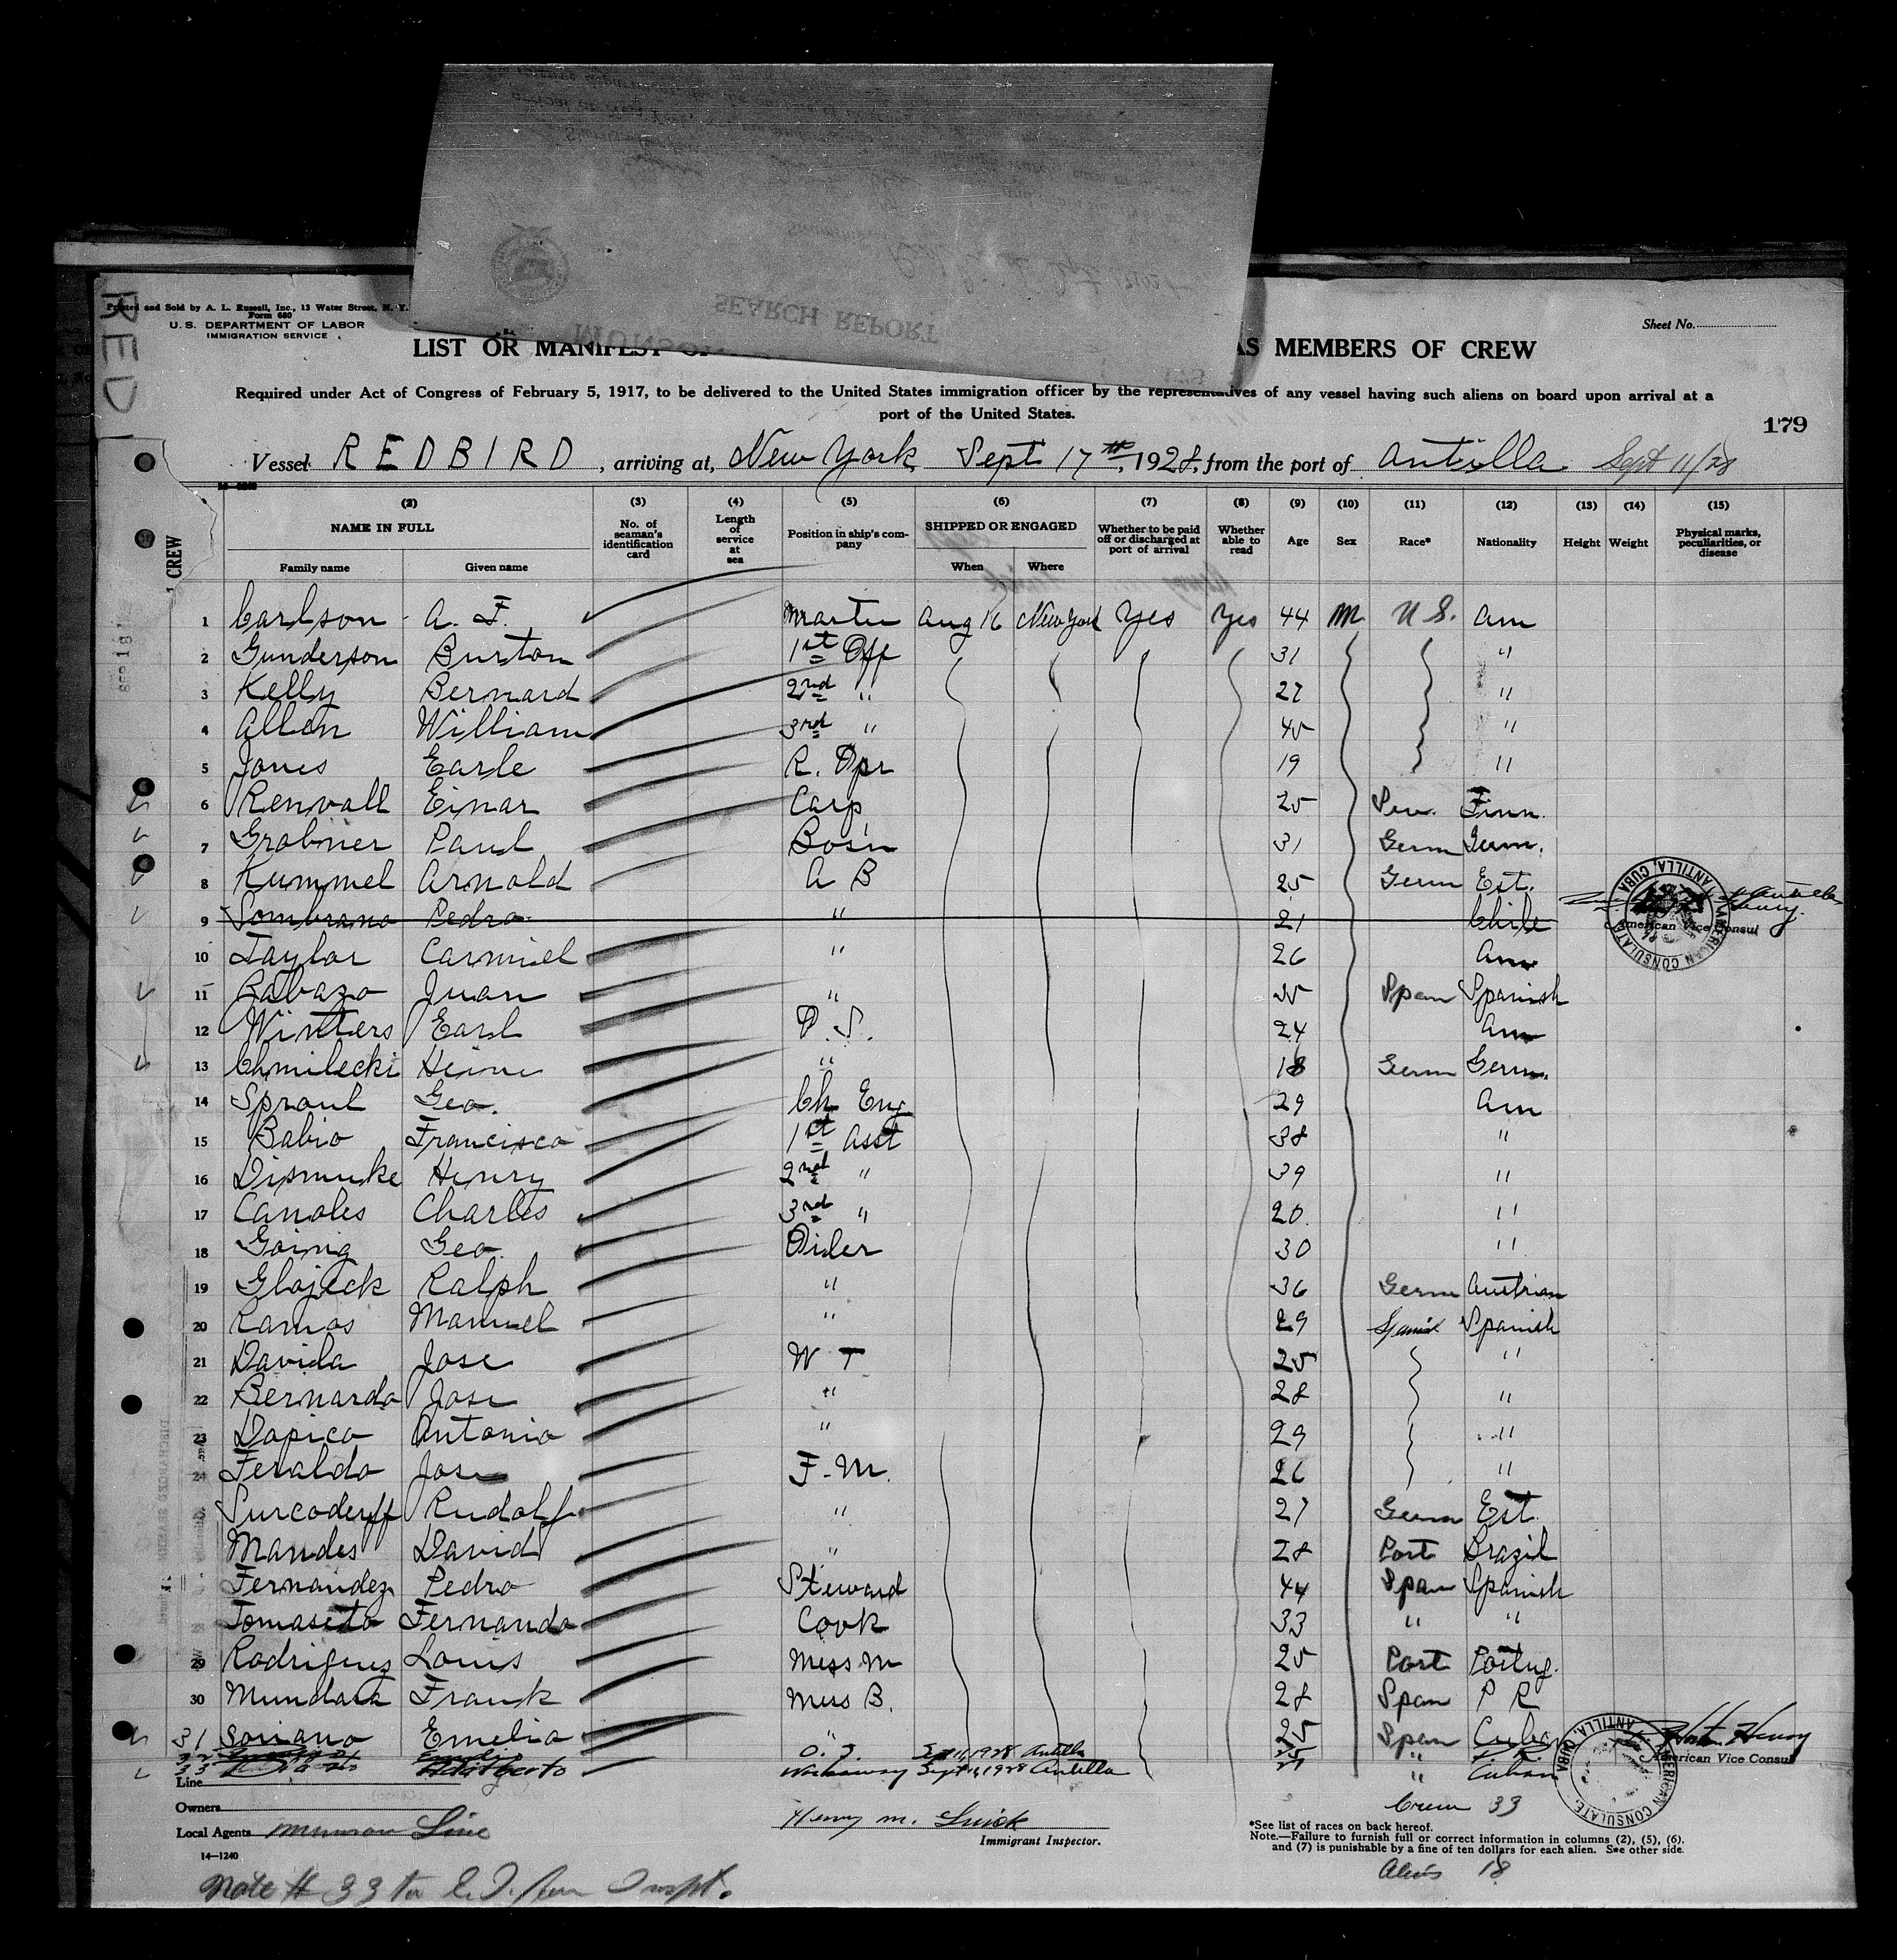 MUNSON
SEARCH REPORT
RED
Printed and Sold by A. L. Russell, Inc., 13 Water Street, N. Y.
Form 680
U.S. DEPARTMENT OF LABOR
IMMIGRATION SERVICE
Sheet No.
LIST OR MANIFEST AS MEMBERS OF CREW
Required under Act of Congress of February 5, 1917, to be delivered to the United States immigration officer by the representatives of any vessel having such aliens on board upon arrival at a
port of the United States.
179
Vessel REDBIRD, arriving at, New York Sept 17th, 1928, from the port of Antilla Sept 11/28
(2) (3) (4) (5) (6) (7) (8) (9) (10) (11) (12) (13) (14) (15)
CREW NAME IN FULL No. of seaman's identification card Length of service at sea Position in ship's company SHIPPED OR ENGAGED Whether to be paid off or discharged at port of arrival Whether able to read Age Sex Race* Nationality Height Weight Physical marks, peculiarities, or disease
Family name Given name When Where
1 Carlson A. F. Master Aug 16 New York Yes Yes 44 M U.S. Am
2 Gunderson Burton 1st Off 31 "
3 Kelly Bernard 2nd " 27 "
4 Allen William 3rd " 45 "
5 Jones Earle R. Opr 19 "
6 Renvall Einar Carp 25 Finn.
7 Grabner Paul Bosn 31 Germ Germ.
8 Kummel Arnold A B 25 Germ Est.
9 Sombrano Pedro " 21 Chile
10 Taylor Carmiel " 26 Am
11 Babazo Juan " Span Spanish
12 Winters Earl O. S. 24 Am
13 Chmilecki Heine " 18 Germ Germ.
14 Sproul Geo. Ch Eng 29 Am
15 Babio Francisco 1st Asst 38 "
16 Dismuke Henry 2nd " 39 "
17 Canoles Charles 3rd " 20 "
18 Going Geo. Oiler 30 "
19 Glojeck Ralph " 36 Germ Austrian
20 Ramos Manuel " 29 Spanish Spanish
21 Davila Jose W T 25 "
22 Bernardo Jose " 28 "
23 Dopico Antonio " 29 "
24 Feraldo Jose F. M. 26 "
Surcoderff Rudolf " 27 Germ Est.
Mandes David " 28 Port Brazil
Fernandez Pedro Steward 44 Span Spanish
Tomaseto Fernando Cook 33 " "
29 Rodriguez Louis Mess M 25 Port Portug.
30 Mundara Frank Mess B. 28 Span P R
31 Soriano Emelio " 25 Span Cuba
32 O. S. Sept 11, 1928 Antilla "
33 Workaway Sept 11, 1928 Antilla " Cuban
AMERICAN CONSULATE ANTILLA CUBA
American Vice Consul
AMERICAN CONSULATE. ANTILLA, CUBA
American Vice Consul
Line
Owners
Local Agents Munson Line
14—1240
Henry M.
Immigrant Inspector.
Crew 33
*See list of races on back hereof.
Note.—Failure to furnish full or correct information in columns (2), (5), (6),
and (7) is punishable by a fine of ten dollars for each alien. See other side.
Aliens 18
Note # 33